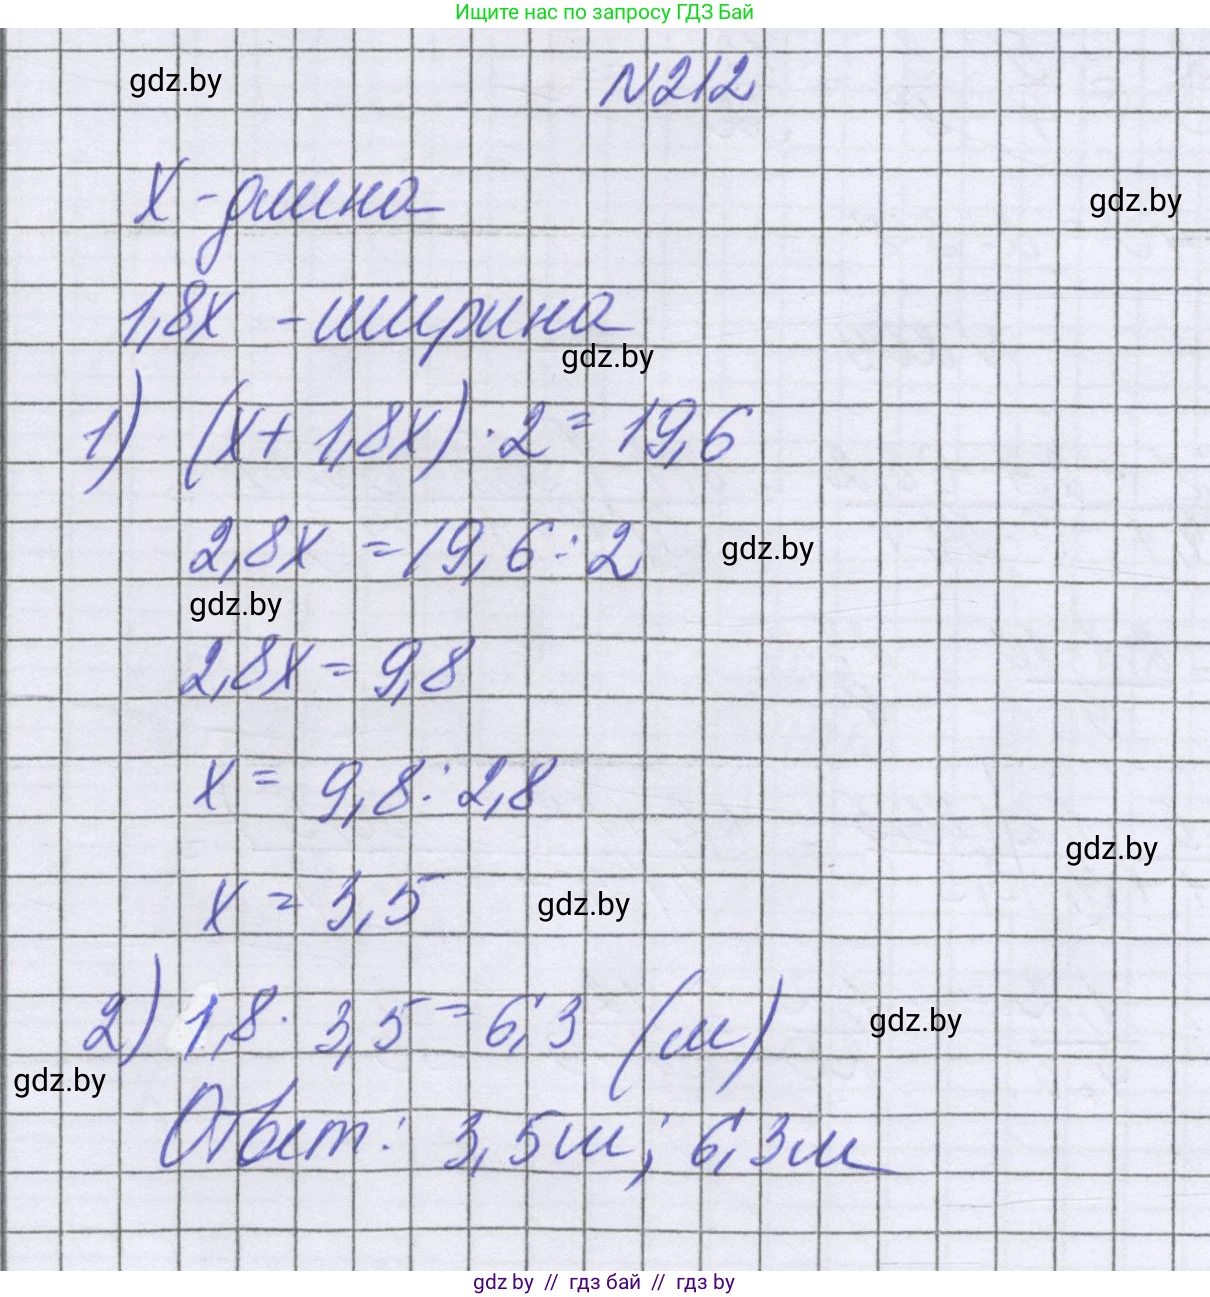 Ищите нас по запросу ГДЗ Бай
gdz.by
N212
х - длина
gdz.by
1,8х - ширина
gdz.by
1) (х + 1,8х) · 2 = 19,6
2,8х = 19,6 : 2
gdz.by
gdz.by
2,8х = 9,8
х = 9,8 : 2,8
gdz.by
х = 3,5
gdz.by
2) 1,8 · 3,5 = 6,3 (м)
gdz.by
gdz.by
Ответ: 3,5м; 6,3м
gdz by // гдз бай // гдз by